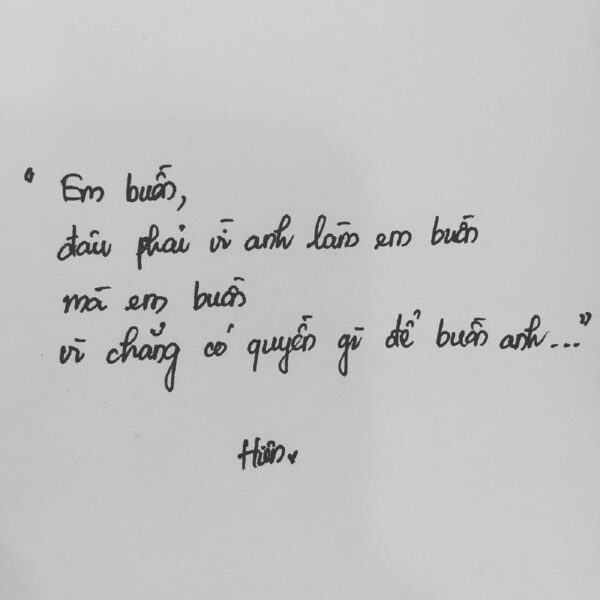 “ Em buồn,
đâu phải vì anh làm em buồn
mà em buồn
vì chẳng có quyền gì để buồn anh...”
Hiên.